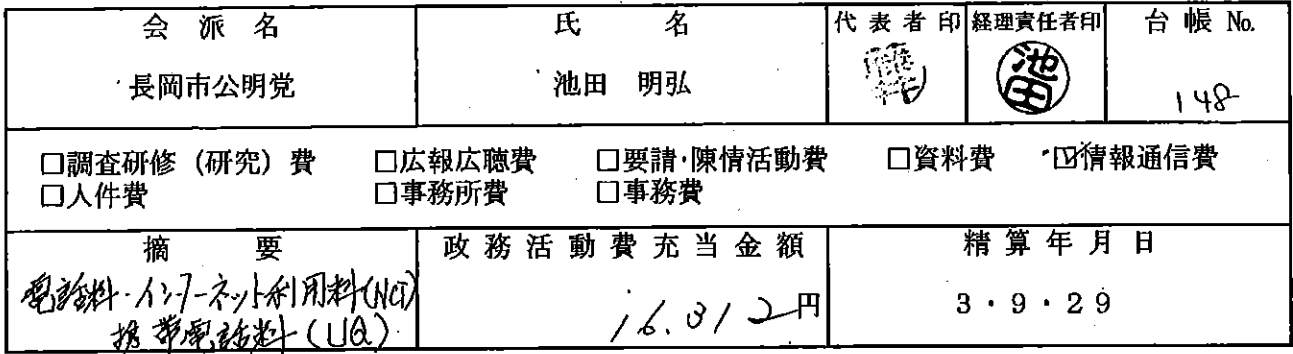 会派名 氏名 代表者印 経理責任者印 台帳 No.
長岡市公明党 池田 明弘 池田 148
□調査研修（研究）費 □広報広聴費 □要請・陳情活動費 □資料費 ☑情報通信費
□人件費 □事務所費 □事務費
摘要 政務活動費充当金額 精算年月日
電話料・インターネット利用料(NCT)
携帯電話料(UQ) 16,312円 3・9・29